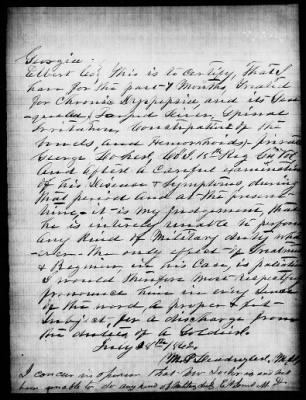 Georgia
Elbert Co. This is to Certify, that I
have for the past 4 Months, treated
for Chronic Dyspepsia and its
Torpid Liver, Spinal
Irritation, Constipation of the
bowels, and Hemorrhoids, private
George Co. I. 15th Reg
And after a Careful examination
of his Disease & Symptoms during
that period and at the present
time, it is my Judgement, that
he is entirely unable to perform
any kind of Military duty what-
ever. The only effect of treatment
& Regimen, in his Case is palliative
I would therefore most respectfully
pronounce him in every sense
of the word a proper & fit
Subject, for a discharge from
the duties of a Soldier.
July 28th 1862
I concur in opinion that Mr is and has
been unable to do any kind of military duty